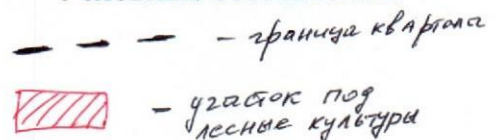 - граница квартала
- участок под
лесные культуры